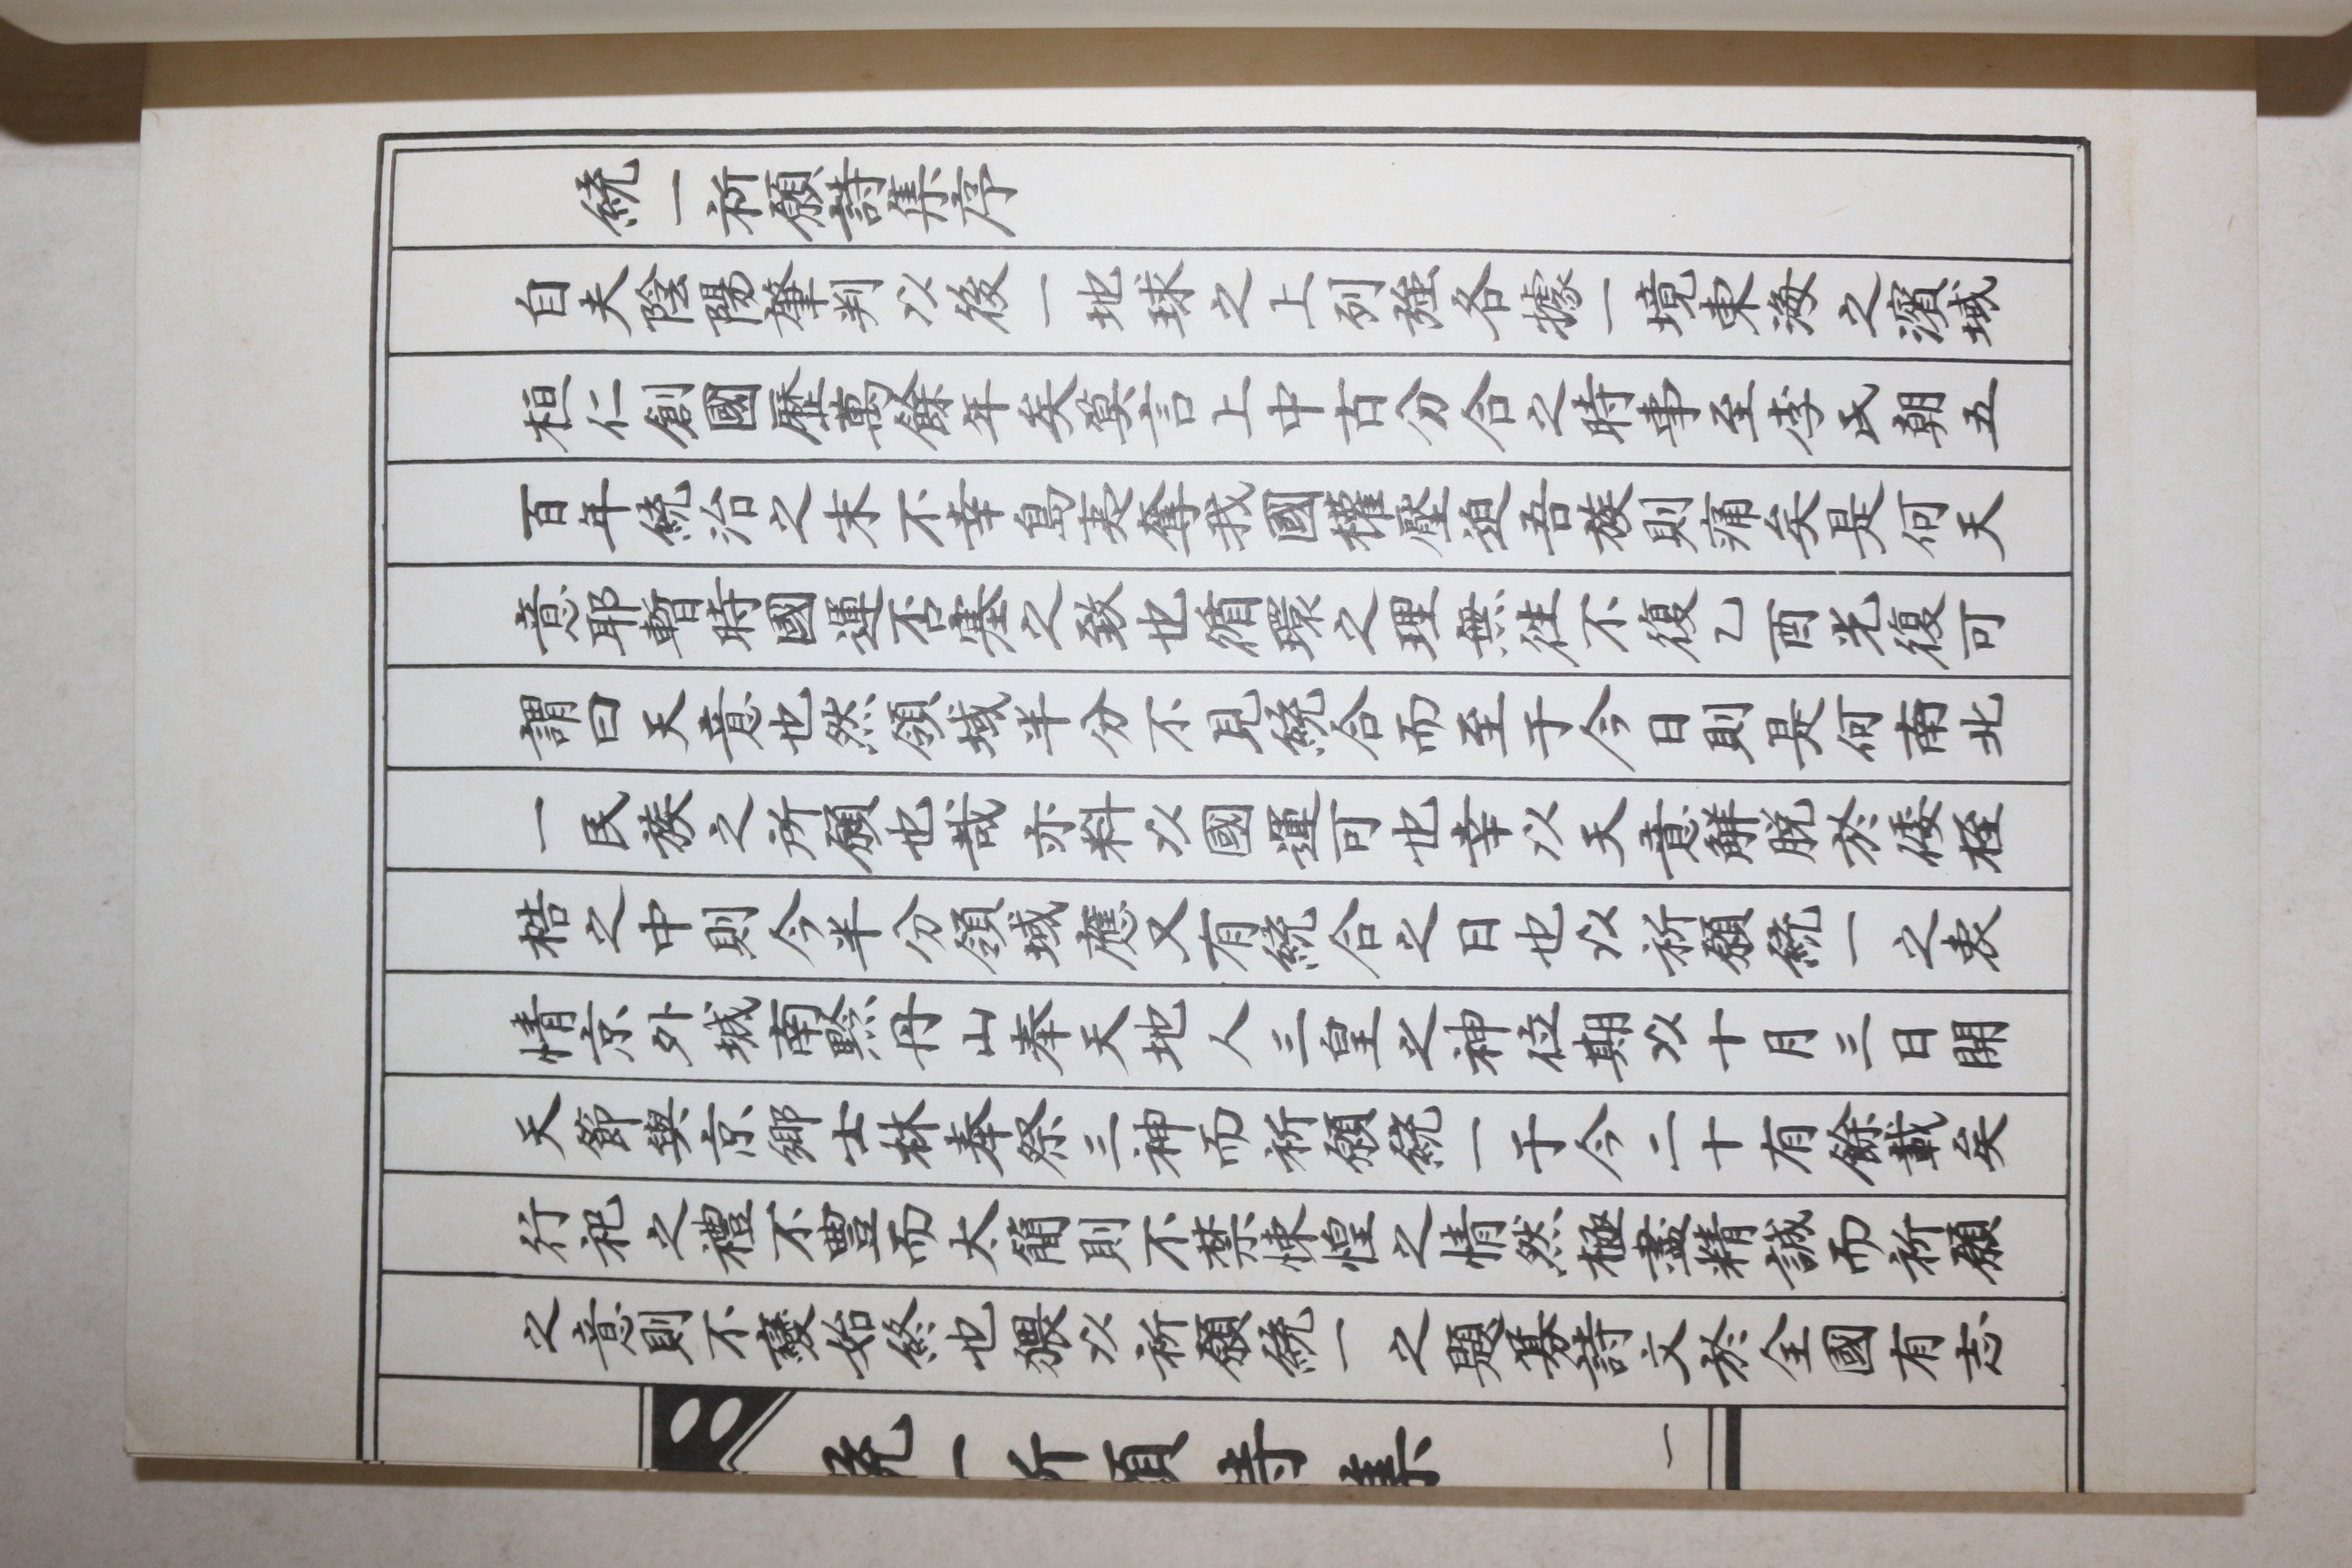 統一祈願詩集序
自夫陰陽肇判以後一地球之上列強各據一境東海之濱域
桓仁創國歷萬餘年矣奠言上中古分合之時事至李氏朝五
百年統治之末不幸島夷奪我國權壓迫吾族則痛矣是何天
意耶暫時國運否塞之致也循環之理無往不復乙酉光復可
謂曰天意也然領域半分不見統合而至于今日則是何南北
一民族之所願也哉亦料以國運可也幸以天意解脫於倭桎
梏之中則今半分領域應又有統合之日也以祈願統一之衷
情京外城南黔丹山奉天地人三皇之神位期以十月三日開
天節與京鄉士林奉祭三神而祈願統一于今二十有餘載矣
行祀之禮不豊而太簡則不禁悚惶之情然極盡精誠而祈願
之意則不變始終也猥以祈願統一之題募詩文於全國有志
統一祈願詩集
一